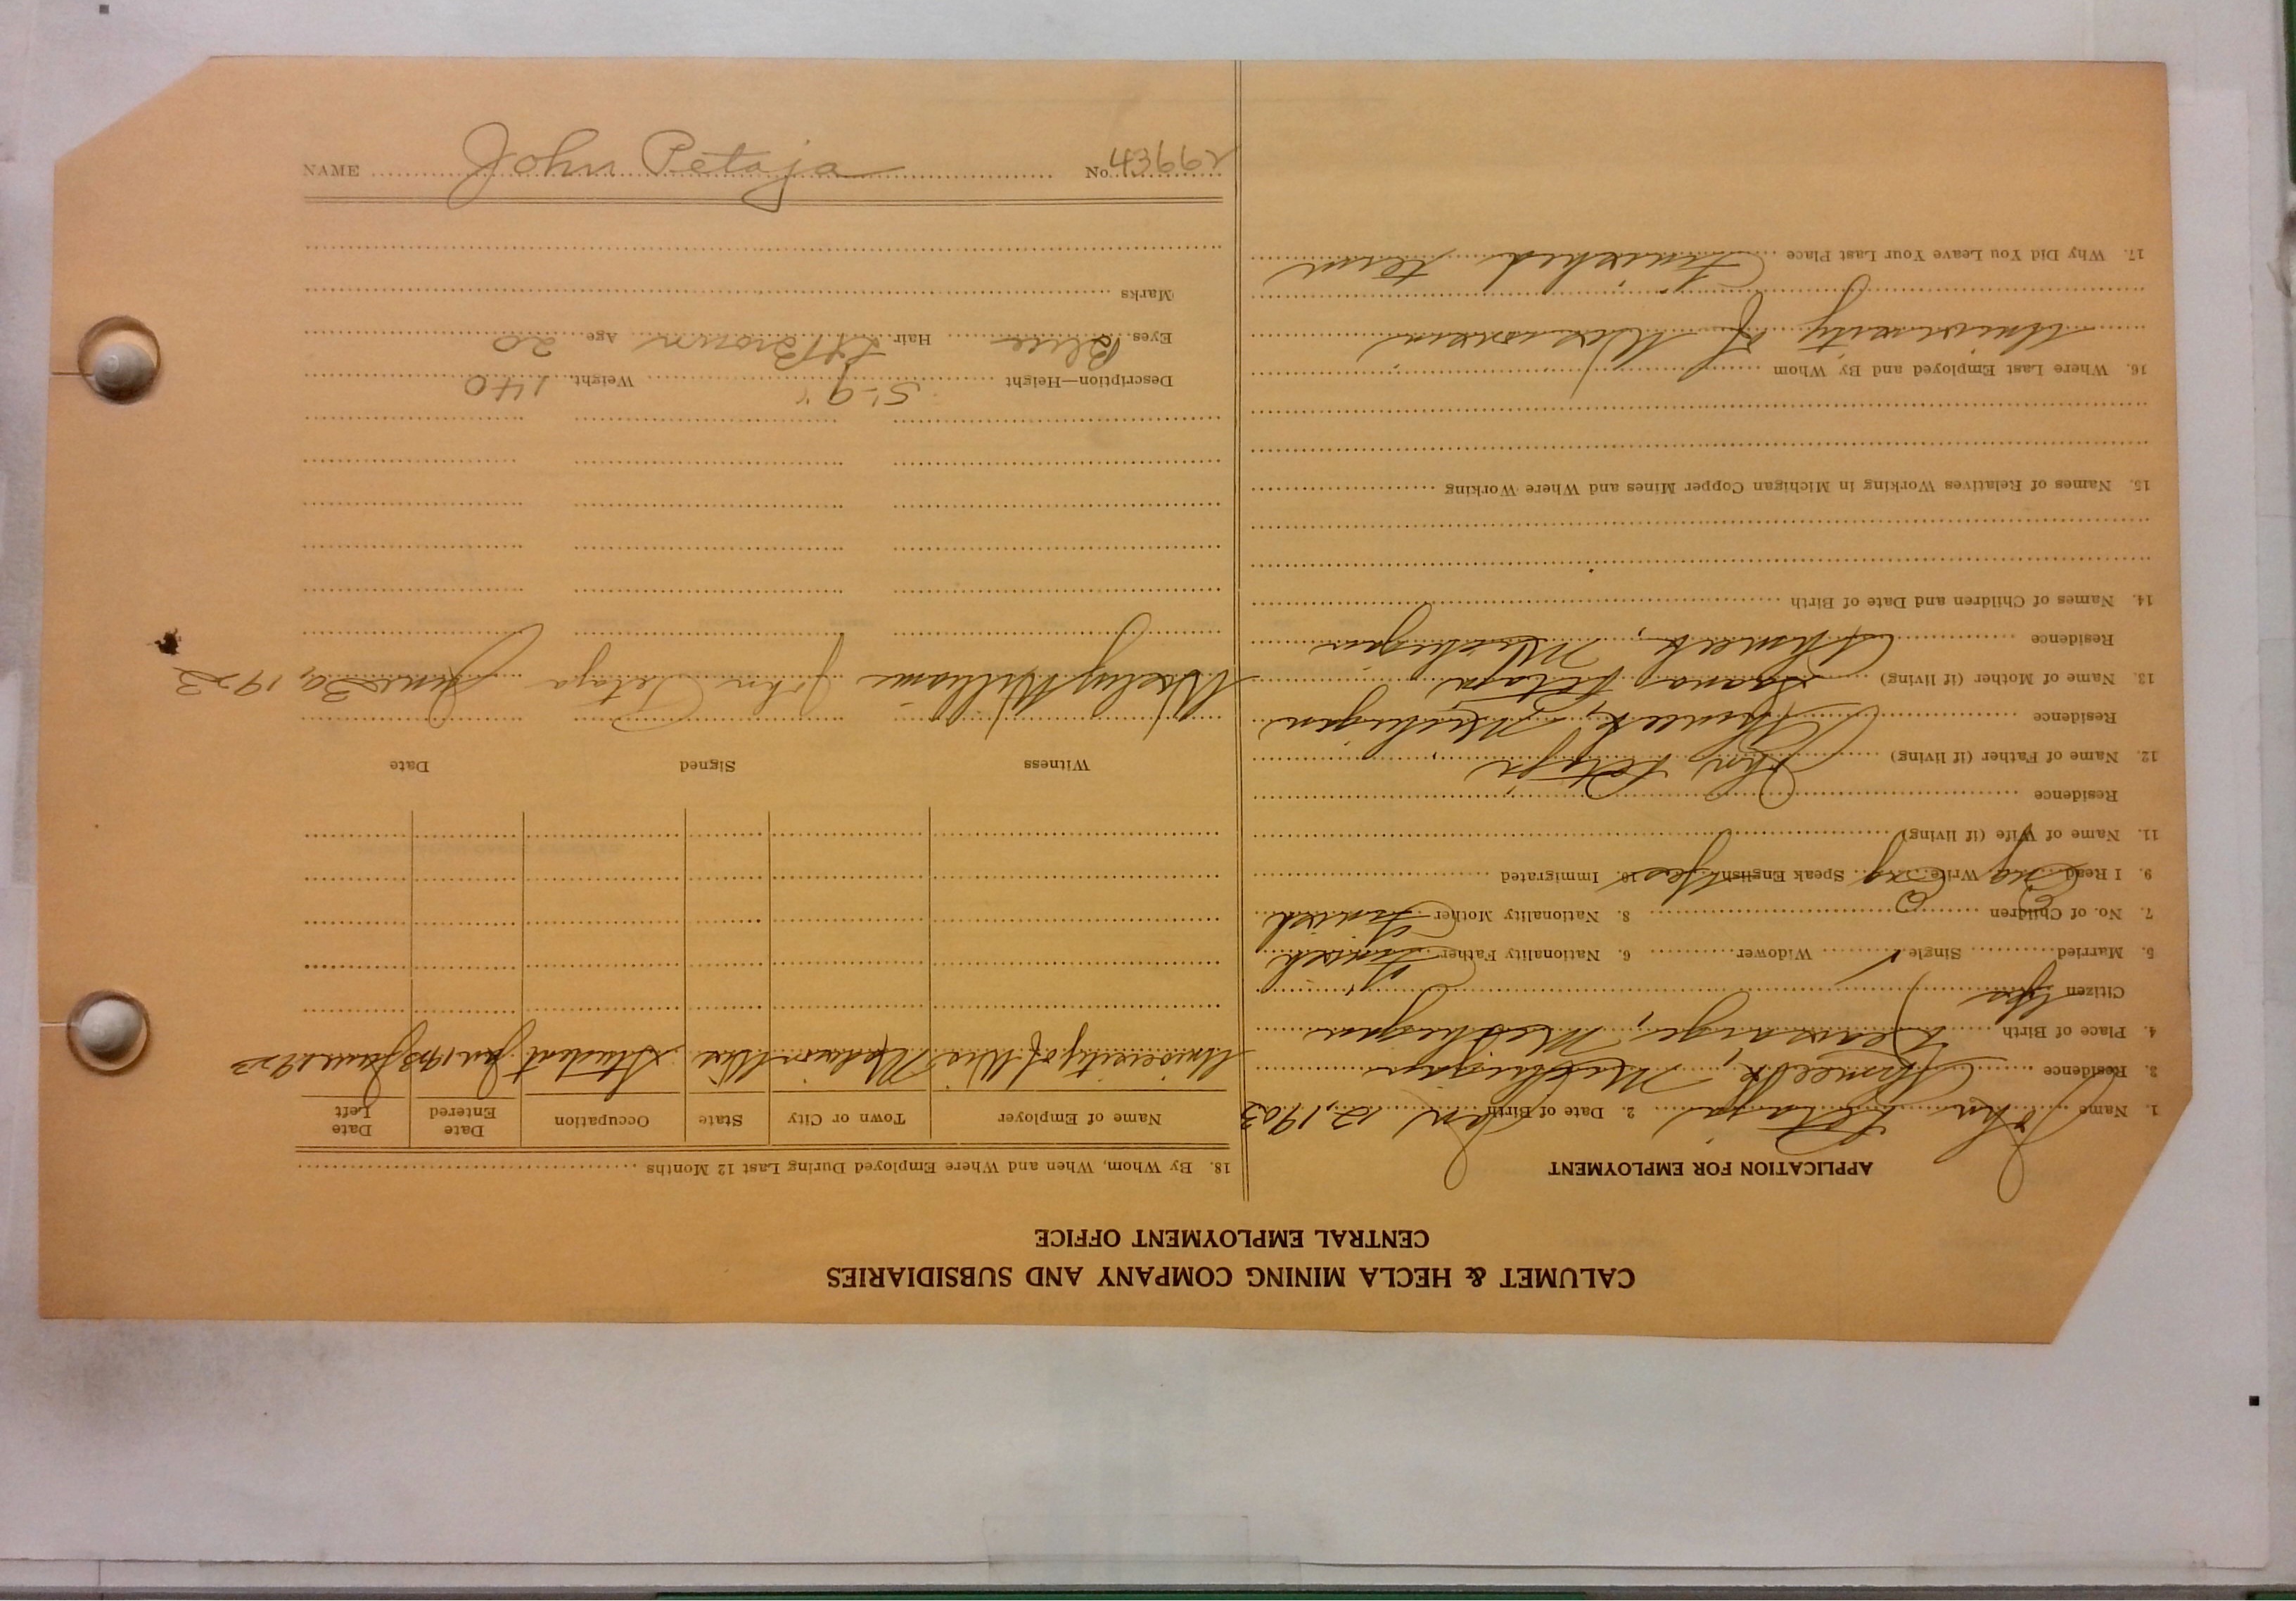 CALUMET & HECLA MINING COMPANY AND SUBSIDIARIES
CENTRAL EMPLOYMENT OFFICE
APPLICATION FOR EMPLOYMENT
1. Name John Petaja 2. Date of Birth Jan 12, 1903
3. Residence Ahmeek, Michigan
4. Place of Birth Kearsarge, Michigan
Citizen Yes
5. Married Single ✓ Widower 6. Nationality Father Finnish
7. No. of Children 0 8. Nationality Mother Finnish
9. I Read Eng Write Eng Speak English Yes 10. Immigrated
11. Name of Wife (if living)
Residence
12. Name of Father (if living) John Petaja
Residence Ahmeek, Michigan
13. Name of Mother (if living) Petaja
Residence Ahmeek, Michigan
14. Names of Children and Date of Birth
15. Names of Relatives Working in Michigan Copper Mines and Where Working
16. Where Last Employed and By Whom
University of Wisconsin
17. Why Did You Leave Your Last Place Finished term
18. By Whom, When and Where Employed During Last 12 Months
Name of Employer Town or City State Occupation Date Entered Date Left
University of Wis Madison Wis Student Jan 1923 June 1923
Witness Signed Date
Wesley Williams John Petaja June 30, 1923
Description—Height 5'-9" Weight 140
Eyes Blue Hair Lt Brown Age 20
Marks
NAME John Petaja No. 43662